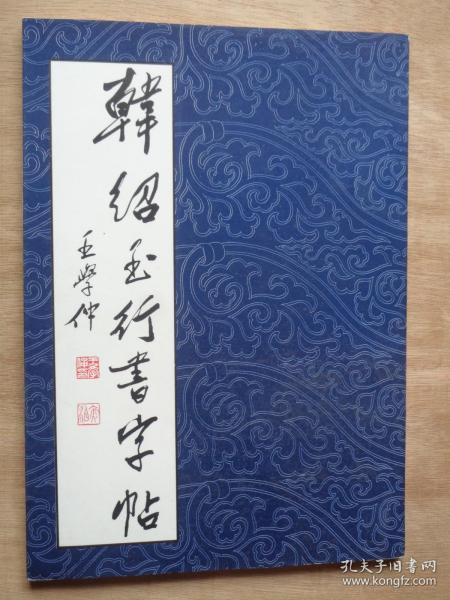 韓紹玉行書字帖
王學仲
孔夫子旧书网
www.kongfz.com